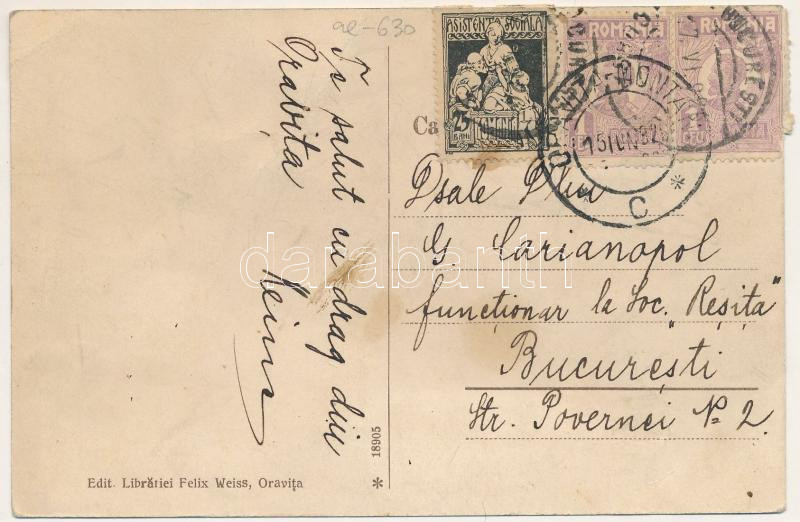 ae-630
Te salut cu drag din
Oravița
Heins
ASISTENȚA SOCIALĂ
25
BANI
ROMÂNIA
ROMÂNIA
BUCUREȘTI
15 IUN 32
C
Ca
Dsale Dlui
G. Carianopol
funcționar la Soc. "Reșița"
București
Str. Povernei No 2
darabanth
18905
Edit. Librăriei Felix Weiss, Oravița
*